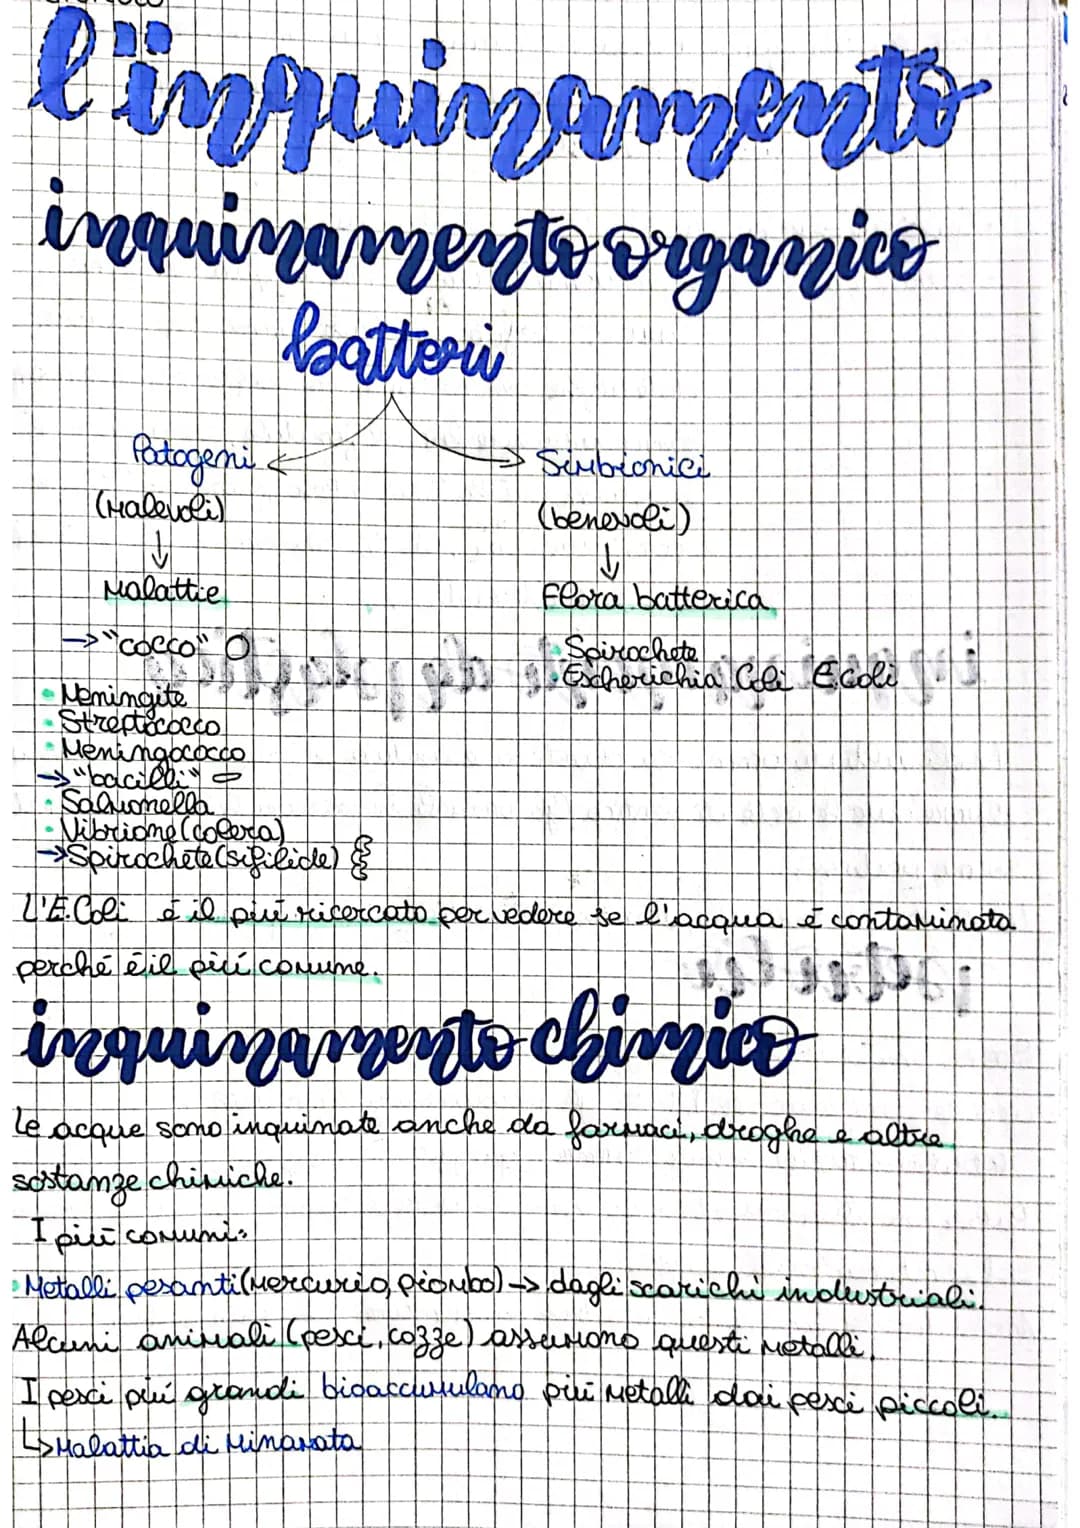 l'inquinamento
inquinamento organico
batteri
Patogeni
Simbionici
(malevoli)
(benevoli)
Malattie
Flora batterica
→"cocco"
• Spirochete
• Escherichia Coli E Coli
• Meningite
• Streptococco
• Meningococco
→"bacilli"
• Salmonella
• Vibrione (colera)
→Spirochete (sifilide)
L'E.Coli é il piú ricercato per vedere se l'acqua é contaminata
perché é il piú comune.
inquinamento chimico
Le acque sono inquinate anche da farmaci, droghe e altre
sostanze chimiche.
I piú comuni:
• Metalli pesanti (mercurio, piombo) → dagli scarichi industriali.
Alcuni animali (pesci, cozze) assumono questi metalli.
I pesci piú grandi bioaccumulano piú metalli dai pesci piccoli.
↳Malattia di Minamata